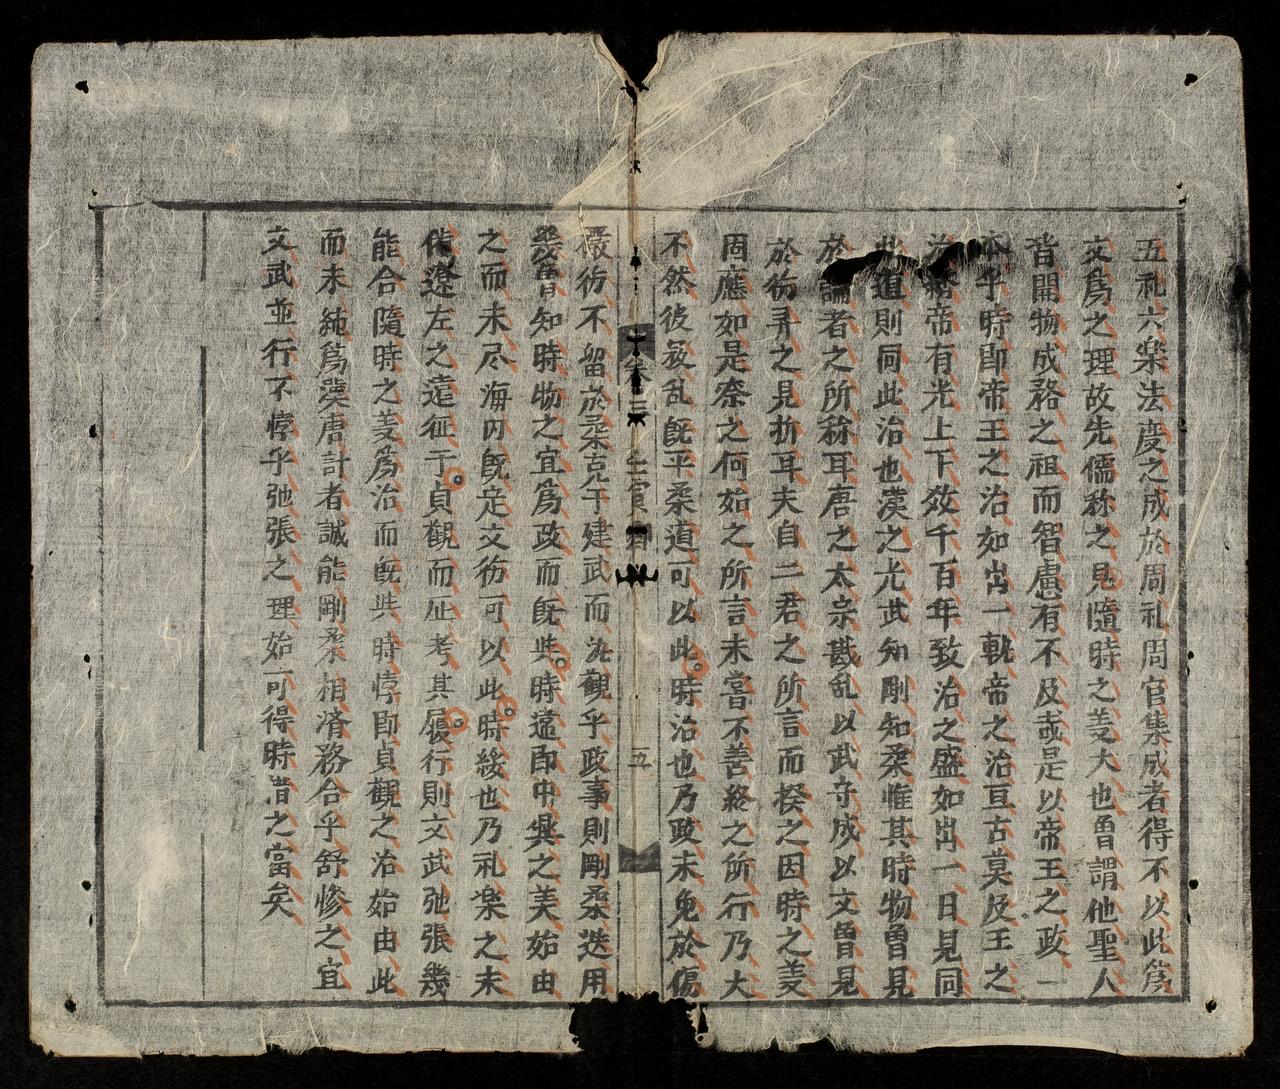 五礼六楽法度之成於周礼周官集成者得不以此爲
文爲之理故先儒称之見隨時之羙大也曽謂他聖人
皆開物成務之祖而智慮有不及哉是以帝王之政一
乎時即帝王之治如出一軌帝之治亘古莫及王之
治帝有光上下效千百年致治之盛如出一日見同
此道則同此治也漢之光武知剛知柔惟其時物曽見
於論者之所称耳唐之太宗戡乱以武守成以文曽見
於彷弄之見折耳夫自二君之所言而揆之因時之羙
固應如是察之何始之所言未嘗不善終之所行乃大
不然彼㪅乱既平柔道可以此時治也乃政未免於傷
嚴彷不留於柔克乎建武而沇觀乎政事則剛柔迭用
曽知時物之宜爲政而既共時違即中興之美始由
之而未尽海内既定文彷可以此時綏也乃礼楽之未
俻遼左之遠征于貞觀而厎考其履行則文武弛張幾
能合隨時之羙爲治而既共時悖即貞觀之治始由此
而未純爲漢唐計者誠能剛柔相済務合乎舒慘之宜
文武並行不悖乎弛張之理始可得時措之當矣
卷二
五